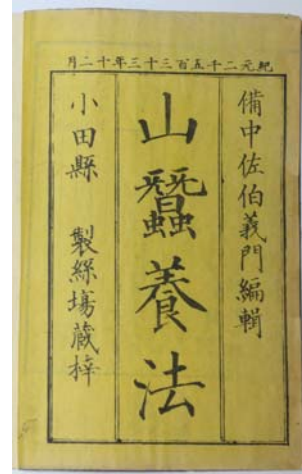 紀元二千五百三十三年十二月
備中佐伯義門編輯
山蠶養法
小田縣 製絲場蔵梓